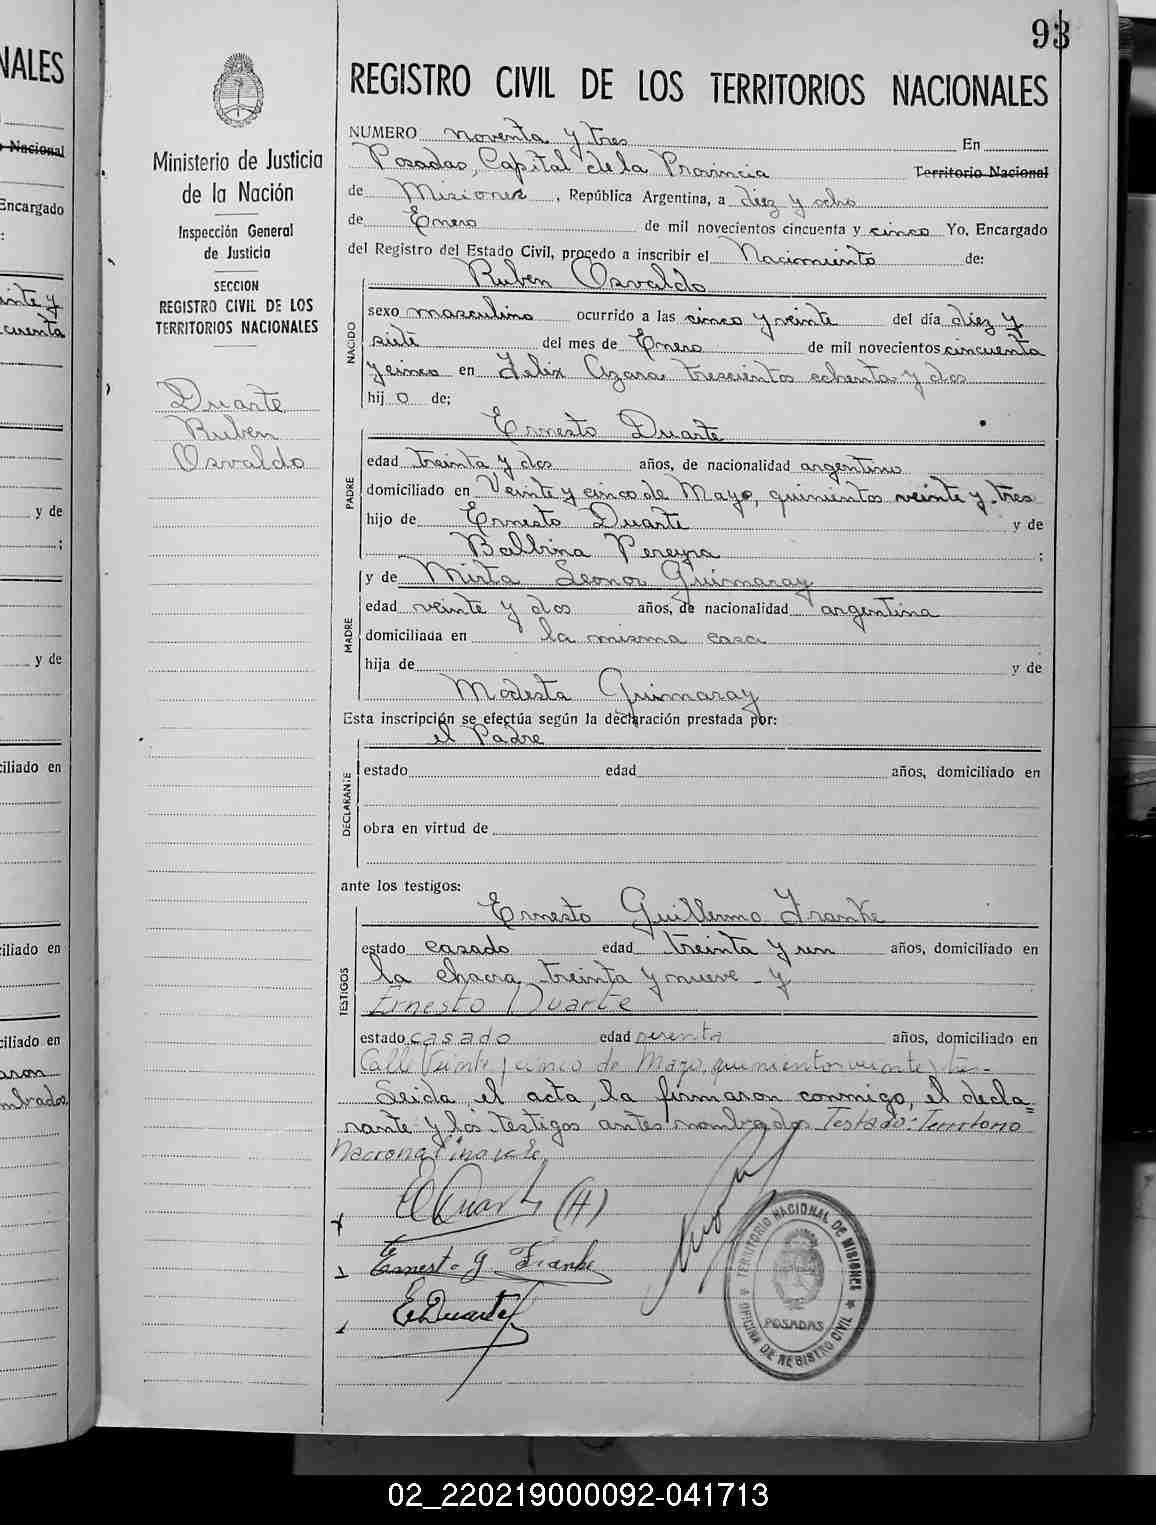 93
NALES
Nacional
Encargado
:
inte y
cuenta
y de
;
y de
ciliado en
ciliado en
ciliado en
aron
mbrados.
Ministerio de Justicia
de la Nación
Inspección General
de Justicia
SECCION
REGISTRO CIVIL DE LOS
TERRITORIOS NACIONALES
Duarte
Ruben
Osvaldo
REGISTRO CIVIL DE LOS TERRITORIOS NACIONALES
NUMERO noventa y tres En
Posadas, Capital de la Provincia Territorio Nacional
de Misiones, República Argentina, a diez y ocho
de Enero de mil novecientos cincuenta y cinco Yo, Encargado
del Registro del Estado Civil, procedo a inscribir el Nacimiento de:
Ruben Osvaldo
NACIDO
sexo masculino ocurrido a las cinco y veinte del día diez y
siete del mes de Enero de mil novecientos cincuenta
y cinco en Felix Azara trescientos ochenta y dos
hij o de;
Ernesto Duarte
PADRE
edad treinta y dos años, de nacionalidad argentino
domiciliado en Veinte y cinco de Mayo, quinientos veinte y tres
hijo de Ernesto Duarte y de
Balbina Pereyra ;
y de Mirta Leonor Guimaray
MADRE
edad veinte y dos años, de nacionalidad argentina
domiciliada en la misma casa
hija de y de
Modesta Guimaray
Esta inscripción se efectúa según la declaración prestada por:
el Padre
DECLARANTE
estado edad años, domiciliado en
obra en virtud de
ante los testigos:
Ernesto Guillermo Franke
TESTIGOS
estado casado edad treinta y un años, domiciliado en
la chacra treinta y nueve - y
Ernesto Duarte
estado casado edad sesenta años, domiciliado en
Calle Veinte y cinco de Mayo, quinientos veinte y tres-
Leida el acta, la firmaron conmigo, el decla=
rante y los testigos antes nombrados Testado: Territorio
Nacional no vale
E Duarte (H)
Ernesto G. Franke
E Duarte
TERRITORIO NACIONAL DE MISIONES
POSADAS
OFICINA DE REGISTRO CIVIL
02_220219000092-041713